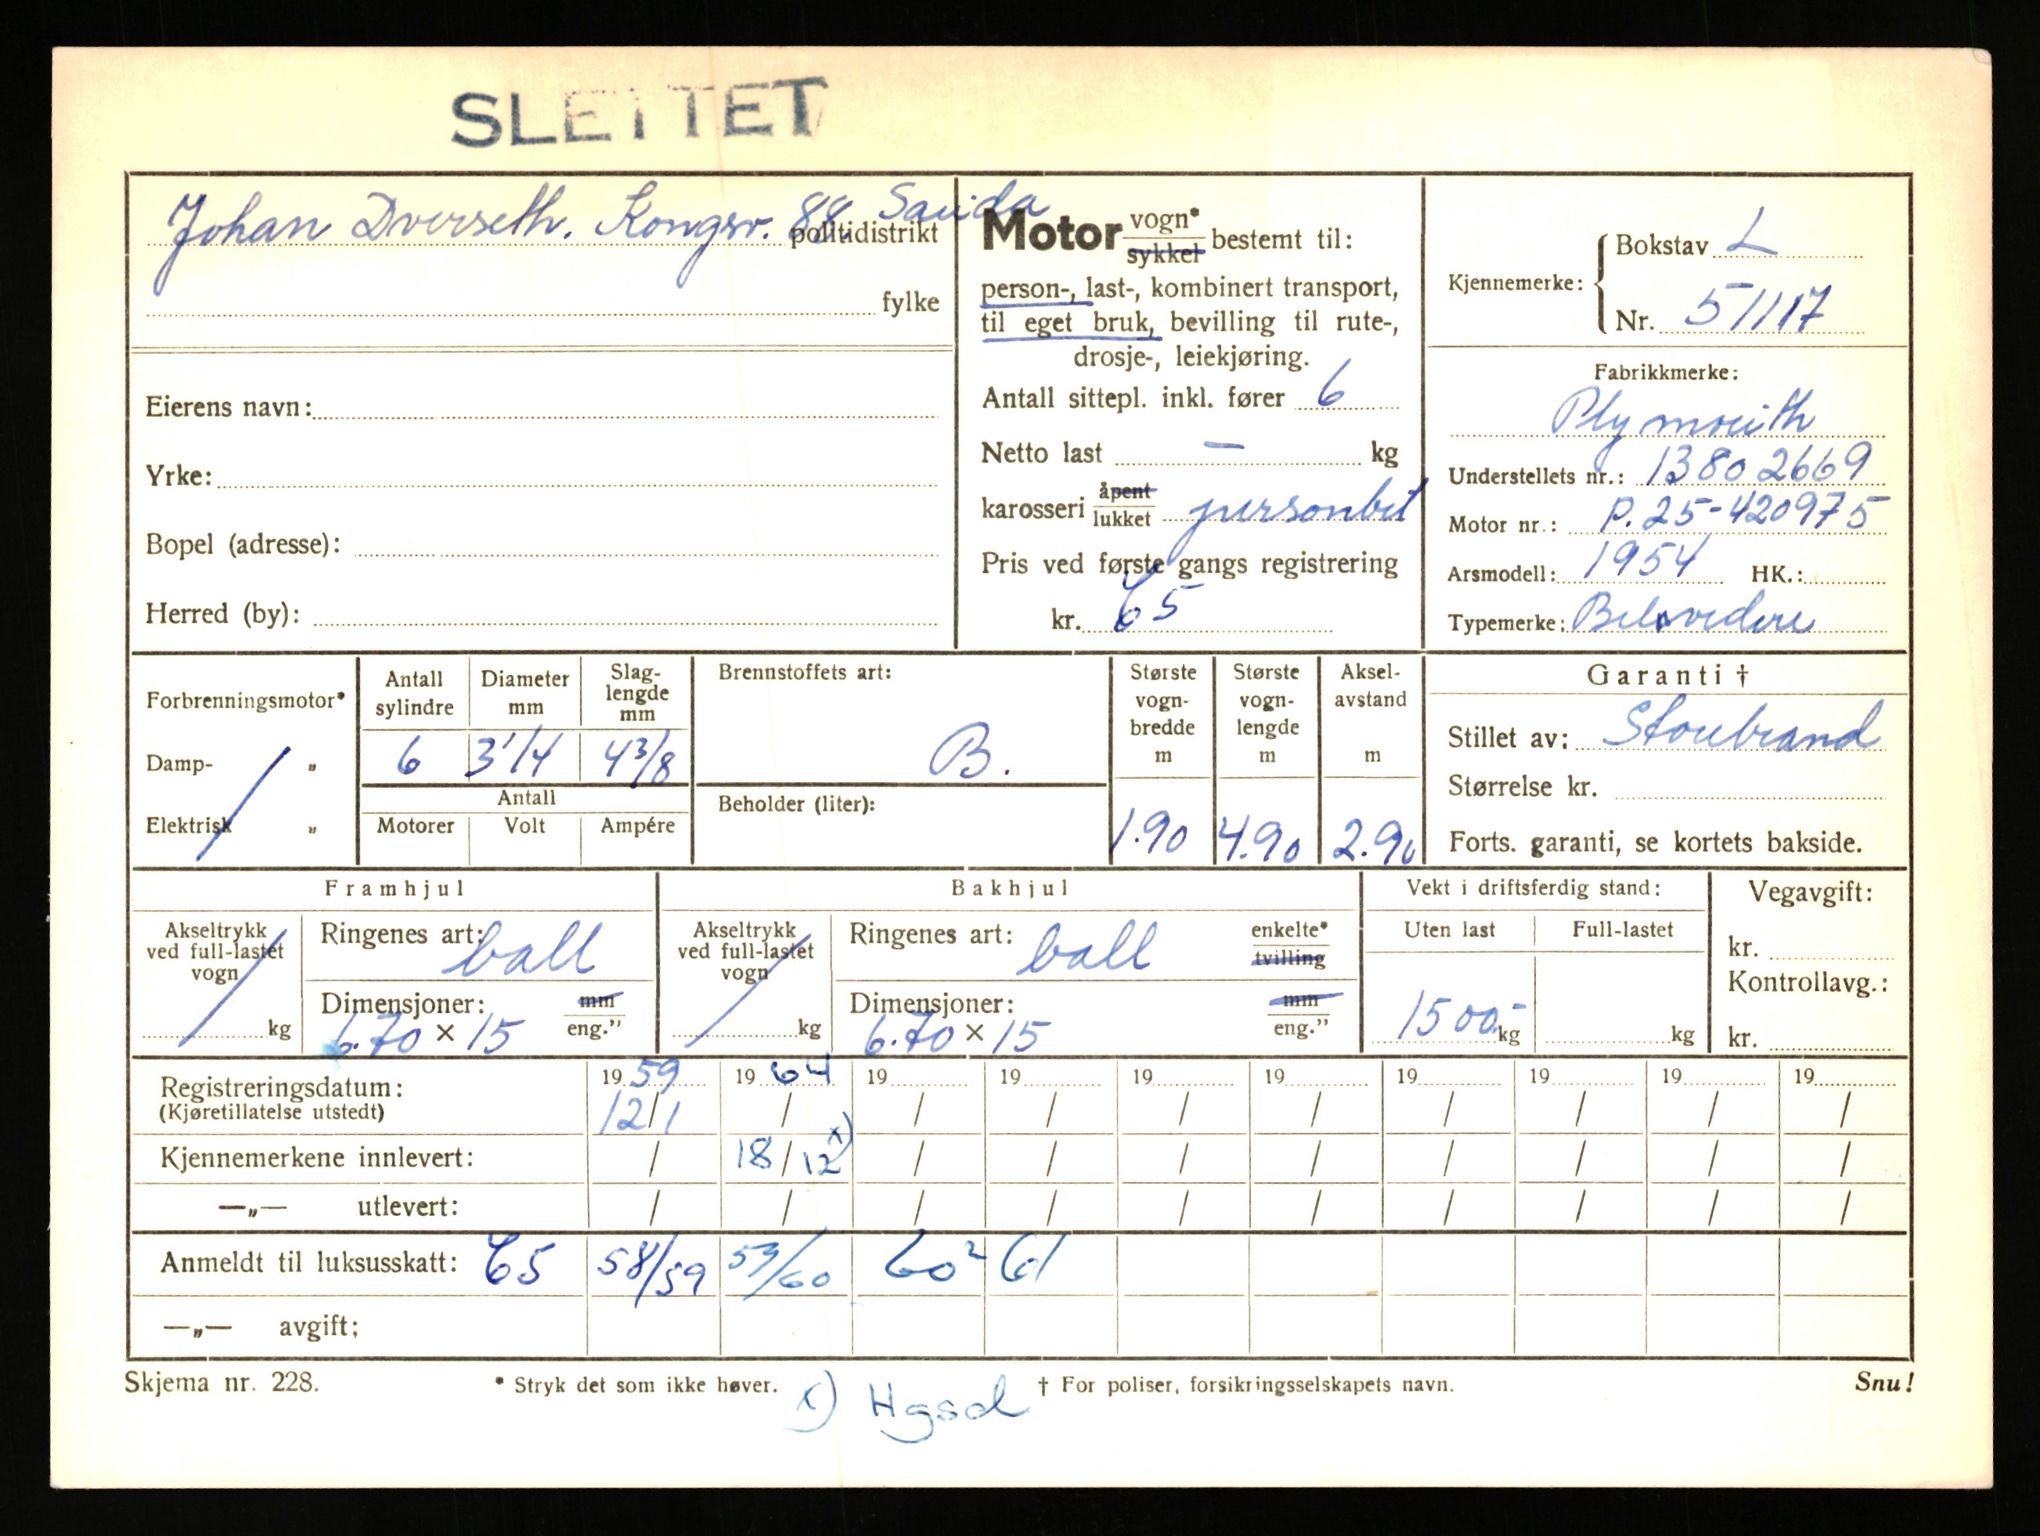 SLETTET
Johan Dverseth. Kongsv. 88. Sauda
politidistrikt
fylke
Eierens navn:
Yrke:
Bopel (adresse):
Herred (by):
Motor vogn* sykkel bestemt til:
person-, last-, kombinert transport,
til eget bruk, bevilling til rute-,
drosje-, leiekjøring.
Antall sittepl. inkl. fører 6
Netto last – kg
karosseri åpent lukket personbil
Pris ved første gangs registrering
kr. 65
Kjennemerke: Bokstav L
Nr. 51117
Fabrikkmerke:
Plymouth
Understellets nr.: 13802669
Motor nr.: P.25-420975
Arsmodell: 1954 HK.:
Typemerke: Belvedere
Forbrenningsmotor*
Damp- „
Elektrisk „
Antall sylindre Diameter mm Slag-lengde mm
6 3 1/4 4 3/8
Antall
Motorer Volt Ampére
Brennstoffets art:
B.
Beholder (liter):
Største vogn-bredde m Største vogn-lengde m Aksel-avstand m
1.90 4.90 2.90
Garanti †
Stillet av: Storebrand
Størrelse kr.
Forts. garanti, se kortets bakside.
Framhjul
Akseltrykk ved full-lastet vogn kg
Ringenes art: ball
Dimensjoner: mm
6.70 × 15 eng.”
Bakhjul
Akseltrykk ved full-lastet vogn kg
Ringenes art: ball enkelte* tvilling
Dimensjoner: mm
6.70 × 15 eng.”
Vekt i driftsferdig stand:
Uten last Full-lastet
1500.- kg kg
Vegavgift:
kr.
Kontrollavg.:
kr.
Registreringsdatum: 19 59 19 64 19 19 19 19 19 19 19 19
(Kjøretillatelse utstedt) 12/1 / / / / / / / / /
Kjennemerkene innlevert: / 18/12 x) / / / / / / / /
—„— utlevert: / / / / / / / / / /
Anmeldt til luksusskatt: 65 58/59 59/60 60² 61
—„— avgift:
Skjema nr. 228. * Stryk det som ikke høver. † For poliser, forsikringsselskapets navn. Snu!
x) Hgsd